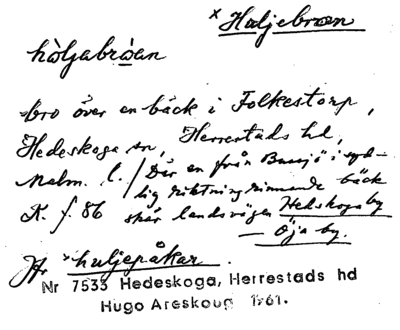 × Huljebroen
hòljabròan
bro över en bäck i Folkestorp,
Hedeskoga sn, Herrestads hd,
Malm. l. / Där en från Bussjö i syd-
lig riktning rinnande bäck
K. f. 86 skär landsvägen Hedeskoga by
— Öja by.
Jfr × huljepåkar.
Nr 7533 Hedeskoga, Herrestads hd
Hugo Areskoug 1961.